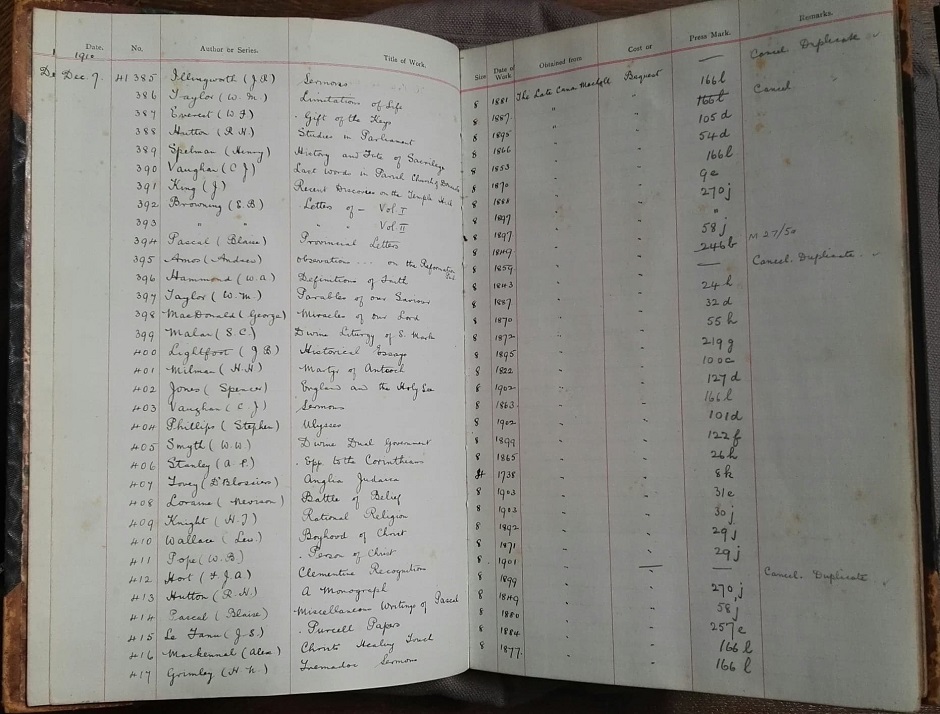 Date. No. Author or Series. Title of Work. Size Date of Work Obtained from Cost or Press Mark. Remarks.
1910
Dec. 7. 41385 Illingworth (J.R) Sermons 8 1881 The Late Bequest — Cancel Duplicate
386 Taylor (W. M.) Limitations of Life 8 1887 " " 166l
387 Everest (W F) Gift of the Keys 8 1895 " " 166l Cancel
388 Hutton (R H.) Studies in Parliament 8 1866 " " 105d
389 Spelman (Henry) History and Fate of Sacrilege 8 1853 " " 54d
390 Vaughan (C J) Last Words in Parish Church of 8 1870 " " 166l
391 King (J) Recent Discoveries on the Temple Hill 8 1888 " " 9e
392 Browning (E.B) Letters of — Vol I 8 1897 " " 270j
393 " " " " Vol II 8 1897 " " "
394 Pascal (Blaise) Provincial Letters 8 1849 " " 58j
395 Amos (Andrew) Observations ... on the Reformation 8 1859 " " 246b M 27/50
396 Hammond (W.A) Definitions of Faith 8 1843 " " — Cancel. Duplicate
397 Taylor (W. M.) Parables of our Saviour 8 1887 " " 24h
398 MacDonald (George) Miracles of our Lord 8 1870 " " 32d
399 Malan (S.C.) Divine Liturgy of S. Mark 8 1872 " " 55h
400 Lightfoot (J B) Historical Essays 8 1895 " " 219g
401 Milman (H.H) Martyr of Antioch 8 1822 " " 100c
402 Jones (Spencer) England and the Holy See 8 1902 " " 127d
403 Vaughan (C. J) Sermons 8 1863 " " 166l
404 Phillips (Stephen) Ulysses 8 1902 " " 101d
405 Smyth (W. W.) Divine Dual Government 8 1899 " " 122f
406 Stanley (A. P.) Epp to the Corinthians 8 1865 " " 26h
407 Tovey (D'Blossiers) Anglia Judaica 4 1738 " " 8k
408 Loraine (Nevison) Battle of Belief 8 1903 " " 31e
409 Knight (H.J) Rational Religion 8 1903 " " 30j
410 Wallace (Lew.) Boyhood of Christ 8 1892 " " 29j
411 Pope (W. B) Person of Christ 8 1871 " " 29j
412 Hort (F J.A.) Clementine Recognitions 8 1901 " — — Cancel. Duplicate
413 Hutton (R.H) A Monograph 8 1899 " " 270j
414 Pascal (Blaise) Miscellaneous Writings of Pascal 8 1849 " " 58j
415 Le Fanu (J.S.) Purcell Papers 8 1880 " " 257e
416 Mackennal (Alex) Christs Healing Touch 8 1884 " " 166l
417 Grimley (H. N.) Tremadoc Sermons 8 1877. " " 166l